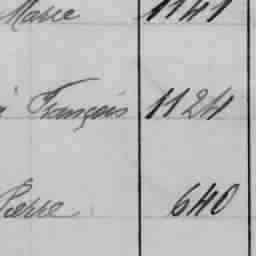 Marie 1141
François 1124
Pierre 640